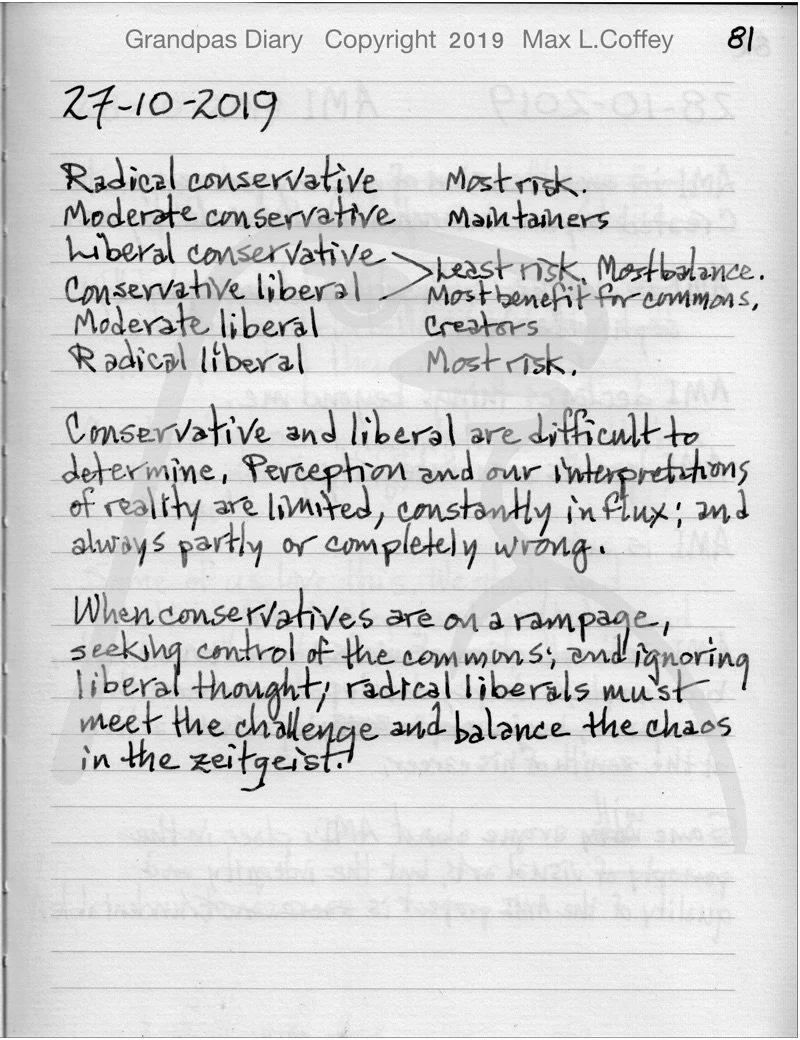 Grandpas Diary Copyright 2019 Max L.Coffey 81
27-10-2019
Radical conservative Most risk.
Moderate conservative Maintainers
Liberal conservative > Least risk. Most balance.
Conservative liberal Most benefit for commons,
Moderate liberal Creators
Radical liberal Most risk.
Conservative and liberal are difficult to
determine, Perception and our interpretations
of reality are limited, constantly in flux; and
always partly or completely wrong.
When conservatives are on a rampage,
seeking control of the commons; and ignoring
liberal thought; radical liberals must
meet the challenge and balance the chaos
in the zeitgeist.